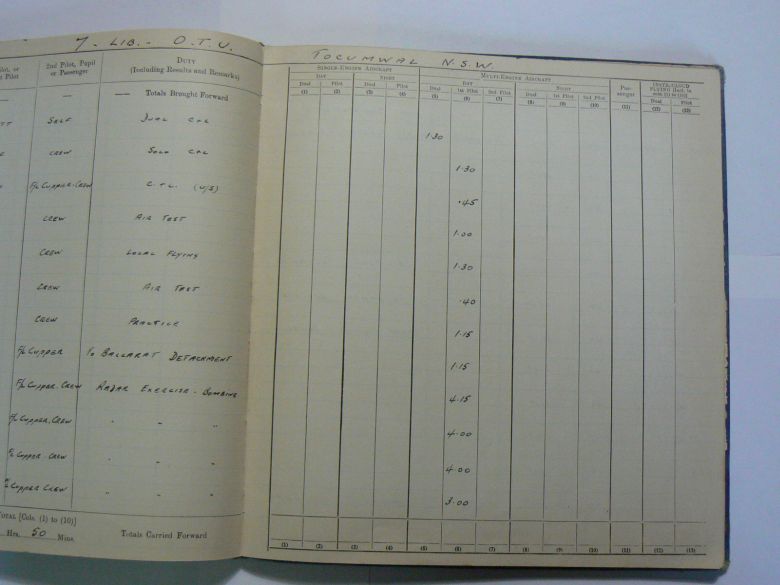 7. LIB. - O.T.U.
TOCUMWAL N.S.W.
2nd Pilot, Pupil or Passenger
DUTY (Including Results and Remarks)
SINGLE-ENGINE AIRCRAFT
MULTI-ENGINE AIRCRAFT
Pas-senger
DAY NIGHT DAY NIGHT
Dual Pilot Dual Pilot Dual 1st Pilot 2nd Pilot Dual 1st Pilot 2nd Pilot Dual Pilot
(1) (2) (3) (4) (5) (6) (7) (8) (9) (10) (11) (12) (13)
— — Totals Brought Forward
SELF DUAL 1·30
CREW 1·30
F/L CUPPER. CREW (U/S) ·45
CREW AIR TEST 1·00
CREW LOCAL FLYING 1·30
CREW AIR TEST ·40
CREW PRACTICE 1·15
F/L CUPPER TO BALLARAT DETACHMENT 1·15
F/L CUPPER. CREW RADAR EXERCISE - BOMBING 4·15
F/L CUPPER. CREW " " " 4·00
F/L CUPPER. CREW " " " 4·00
F/L CUPPER CREW " " " 3·00
TOTAL [Cols. (1) to (10)]
Hrs. 50 Mins. Totals Carried Forward
(1) (2) (3) (4) (5) (6) (7) (8) (9) (10) (11) (12) (13)